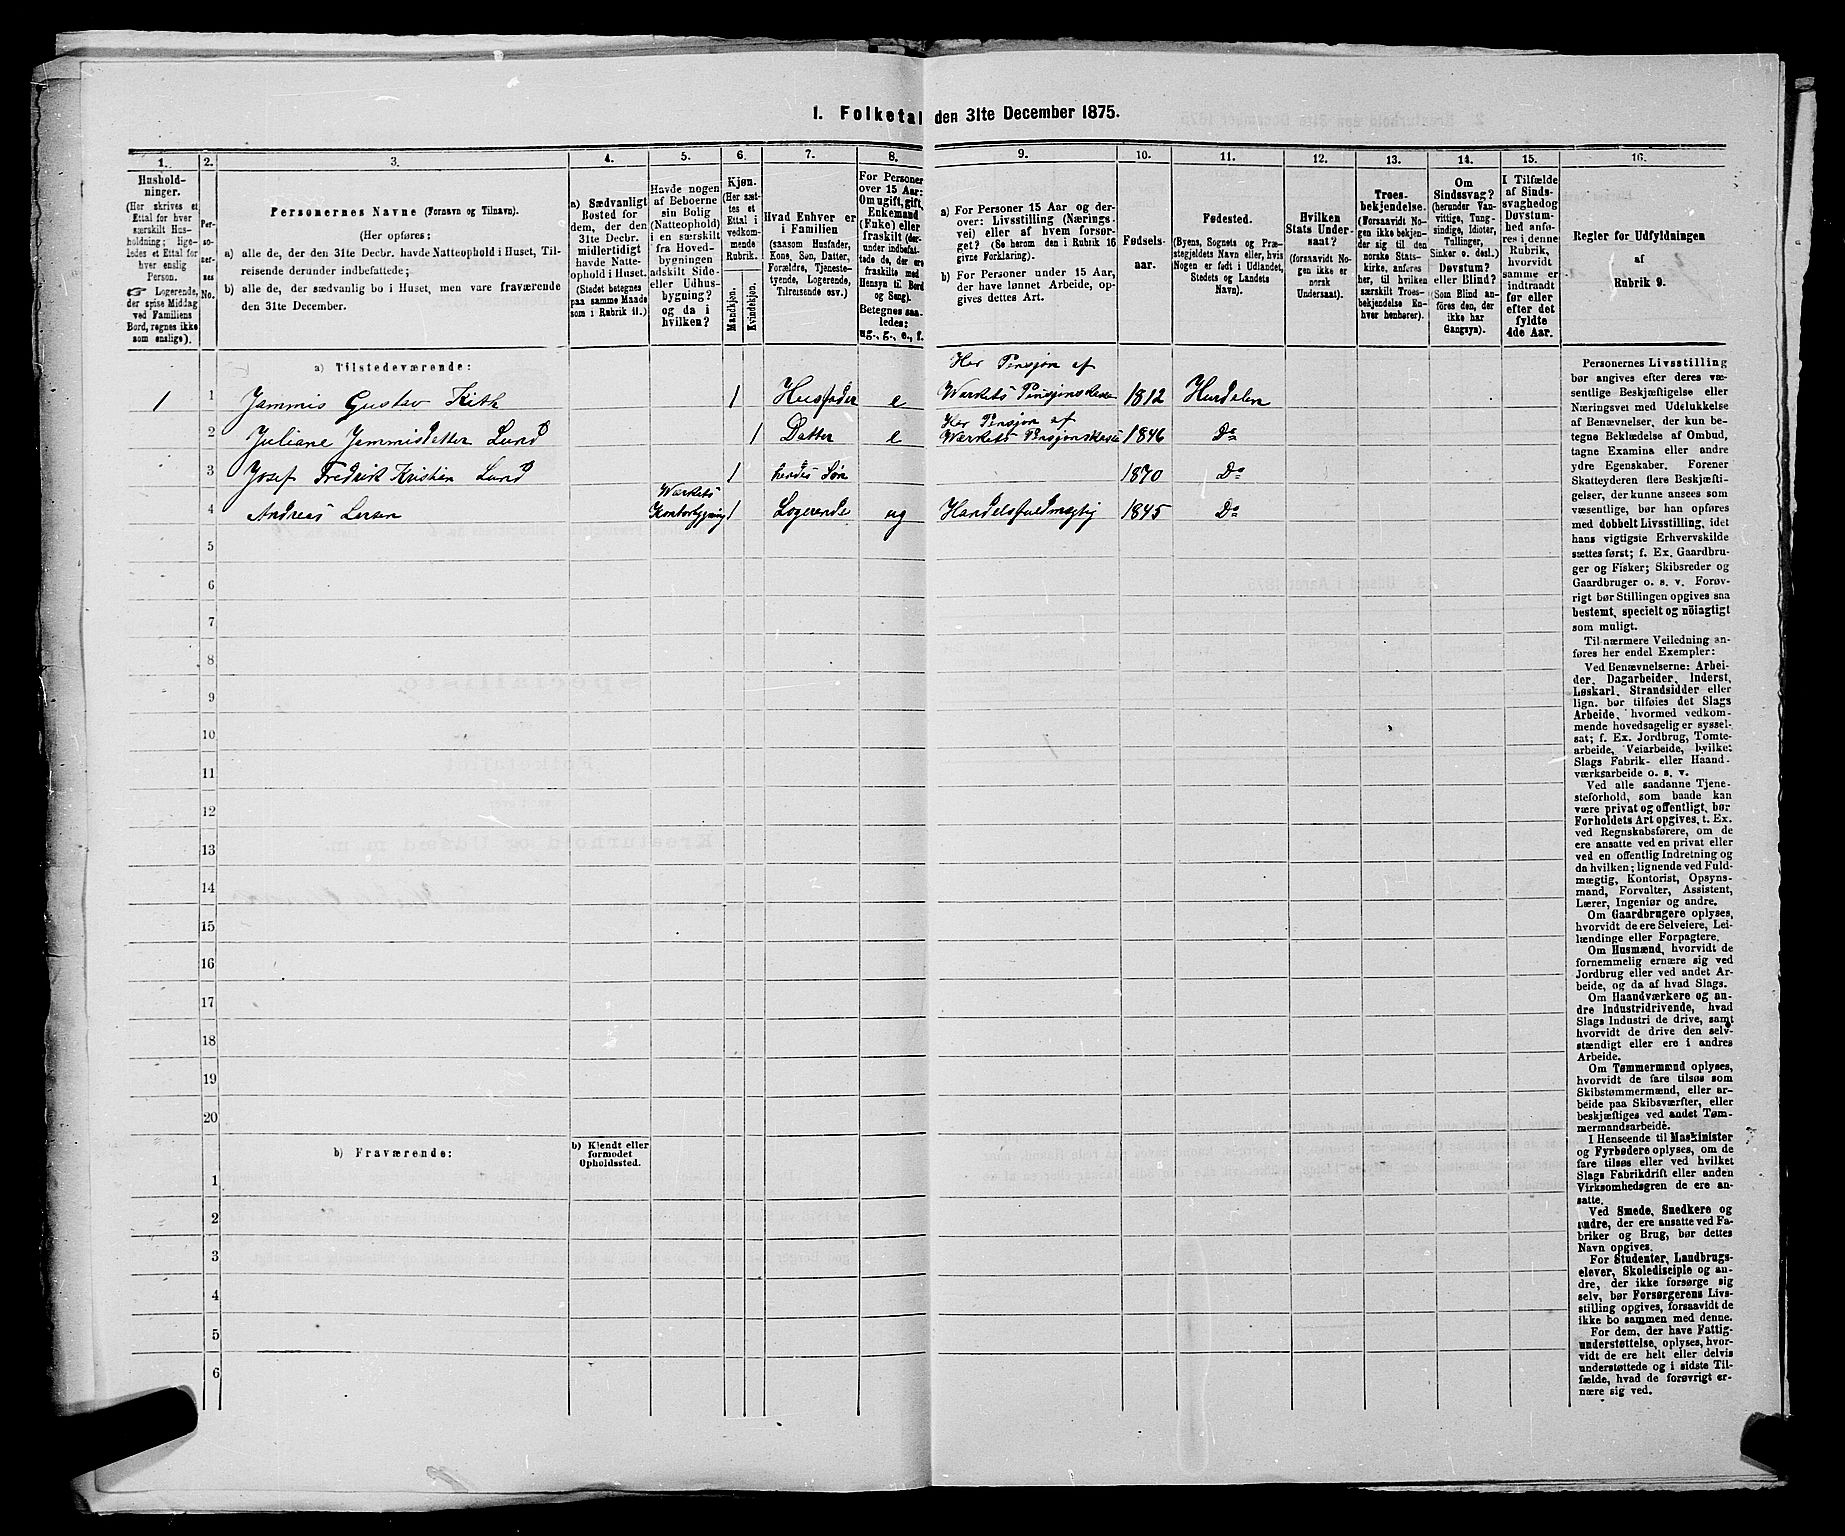 1. Folketal den 31te December 1875.
1.
2.
3.
4.
5.
6.
7.
8.
9.
10.
11.
12.
13.
14.
15.
16.
Hushold-
ninger.
(Her skrives et
Ettal for hver
særskilt Hus-
holdning; lige-
ledes et Ettal for
hver enslig
Person.
☞ Logerende,
der spise Middag
ved Familiens
Bord, regnes ikke
som enslige).
Per-
so-
ner-
nes
No.
Personernes Navne (Fornavn og Tilnavn).
(Her opføres:
a) alle de, der den 31te Decbr. havde Natteophold i Huset, Til-
reisende derunder indbefattede;
b) alle de, der sædvanlig bo i Huset, men vare fraværende
den 31te December.
a) Sædvanligt
Bosted for
dem, der den
31te Decbr.
midlertidigt
havde Natte-
ophold i Huset.
(Stedet betegnes
paa samme Maade
som i Rubrik 11.)
Havde nogen
af Beboerne
sin Bolig
(Natteophold)
i en særskilt
fra Hoved-
bygningen
adskilt Side-
eller Udhus-
bygning?
og da i
hvilken?
Kjøn.
(Her sæt-
tes et
Ettal i
vedkom-
mende
Rubrik.
Mandkjøn.
Kvindekjøn.
Hvad Enhver er
i Familien
(saasom Husfader,
Kone, Søn, Datter,
Forældre, Tjeneste-
tyende, Logerende,
Tilreisende osv.)
For Personer
over 15 Aar:
Om ugift, gift,
Enkemand
(Enke) eller
fraskilt (der-
under indbefat-
tede de, der ere
fraskilte med
Hensyn til Bord
og Seng).
Betegnes saa-
ledes:
ug., g., e., f.
a) For Personer 15 Aar og der-
over: Livsstilling (Nærings-
vei) eller af hvem forsør-
get? (Se herom den i Rubrik 16
givne Forklaring).
b) For Personer under 15 Aar,
der have lønnet Arbeide, op-
gives dettes Art.
Fødsels-
aar.
Fødested.
(Byens, Sognets og Præ-
stegjeldets Navn eller, hvis
Nogen er født i Udlandet,
Stedets og Landets
Navn).
Hvilken
Stats Under-
saat?
(forsaavidt No-
gen ikke er
norsk
Undersaat).
Troes-
bekjendelse.
(Forsaavidt No-
gen ikke bekjen-
der sig til den
norske Stats-
kirke, anføres
her, til hvilken
særskilt Troes-
bekjendelse En-
hver henhører).
Om
Sindssvag?
(herunder Van-
vittige, Tung-
sindige, Idioter,
Tullinger,
Sinker o. desl.)
Døvstum?
eller Blind?
(Som Blind an-
føres den, der
ikke har
Gangsyn).
I Tilfælde
af Sinds-
svaghed og
Døvstum-
hed anfø-
res i denne
Rubrik,
hvorvidt
samme er
indtraadt
før eller
efter det
fyldte
4de Aar.
Regler for Udfyldningen
af
Rubrik 9.
a) Tilstedeværende:
1 1 Jammis Gustav Kith 1 Husfader e Har Pensjon af
Værkets Pensjonskasse 1812 Hurdalen
2 Juliane Jammisdatter Lund 1 Datter e Har Pensjon af
Værkets Pensjonskasse 1846 Do
3 Josef Fredrik Kristian Lund 1 hendes Søn 1870 Do
4 Andreas Larsen Værkets
Kontorbygning 1 Logerende ug Handelsfuldmægtig 1845 Do
5
6
7
8
9
10
11
12
13
14
15
16
17
18
19
20
b) Fraværende:
b) Kjendt eller
formodet
Opholdssted.
1
2
3
4
5
6
Personernes Livsstilling
bør angives efter deres væ-
sentlige Beskjæftigelse eller
Næringsvei med Udelukkelse
af Benævnelser, der kun be-
tegne Beklædelse af Ombud,
tagne Examina eller andre
ydre Egenskaber. Forener
Skatteyderen flere Beskjæfti-
gelser, der kunne ansees som
væsentlige, bør han opføres
med dobbelt Livsstilling, idet
hans vigtigste Erhvervskilde
sættes først; f. Ex. Gaardbru-
ger og Fisker; Skibsreder og
Gaardbruger o. s. v. Forøv-
rigt bør Stillingen opgives saa
bestemt, specielt og nöiagtigt
som muligt.
Til nærmere Veiledning an-
føres her endel Exempler:
Ved Benævnelserne: Arbei-
der, Dagarbeider, Inderst,
Løskarl, Strandsidder eller
lign. bør tilføies det Slags
Arbeide, hvormed vedkom-
mende hovedsagelig er syssel-
sat; f. Ex. Jordbrug, Tomte-
arbeide, Veiarbeide, hvilket
Slags Fabrik- eller Haand-
værksarbeide o. s. v.
Ved alle saadanne Tjene-
steforhold, som baade kan
være privat og offentligt, bør
Forholdets Art opgives, t. Ex.
ved Regnskabsførere, om de
ere ansatte ved en privat eller
ved en offentlig Indretning og
da hvilken; lignende ved Fuld-
mægtig, Kontorist, Opsyns-
mand, Forvalter, Assistent,
Lærer, Ingeniør og andre.
Om Gaardbrugere oplyses,
hvorvidt de ere Selveiere, Lei-
lændinge eller Forpagtere.
Om Husmænd, hvorvidt de
fornemmelig ernære sig ved
Jordbrug eller ved andet Ar-
beide, og da af hvad Slags.
Om Haandværkere og an-
dre Industridrivende, hvad
Slags Industri de drive, samt
hvorvidt de drive den selv-
stændigt eller ere i andres
Arbeide.
Om Tømmermænd oplyses,
hvorvidt de fare tilsøs som
Skibstømmermænd, eller ar-
beide paa Skibsværfter, eller
beskjæftiges ved andet Tøm-
mermandsarbeide.
I Henseende til Maskinister
og Fyrbødere oplyses, om de
fare tilsøs eller ved hvilket
Slags Fabrikdrift eller anden
Virksomhedsgren de ere an-
satte.
Ved Smede, Snedkere og
andre, der ere ansatte ved Fa-
briker og Brug, bør dettes
Navn opgives.
For Studenter, Landbrugs-
elever, Skoledisciple og an-
dre, der ikke forsørge sig
selv, bør Forsørgerens Livs-
stilling opgives, forsaavidt de
ikke bo sammen med denne.
For dem, der have Fattig-
understøttelse, oplyses, hvor-
vidt de ere helt eller delvis
understøttede og i sidste Til-
fælde, hvad de forøvrigt er-
nære sig ved.